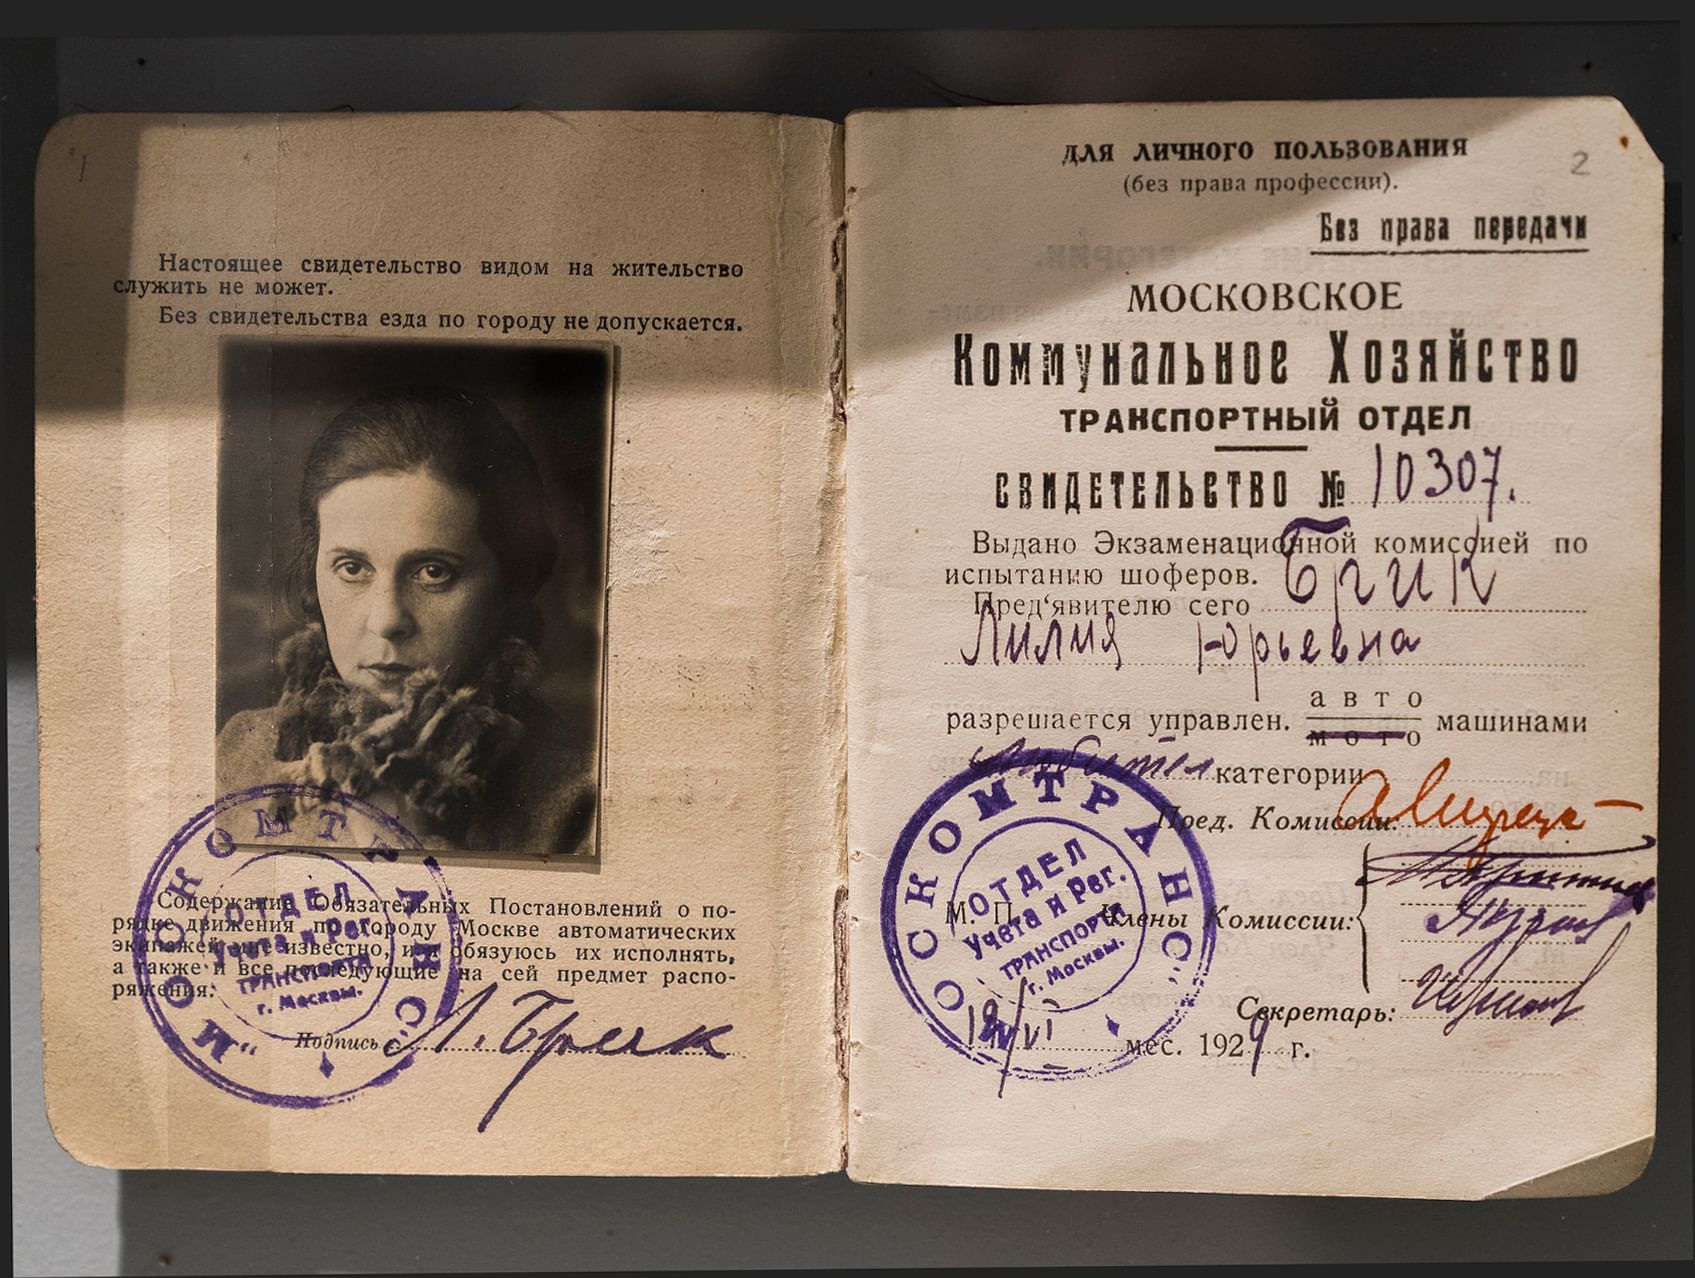 1
Настоящее свидетельство видом на жительство
служить не может.
Без свидетельства езда по городу не допускается.
Содержание Обязательных Постановлений о по-
рядке движения по городу Москве автоматических
экипажей мне известно, и я обязуюсь их исполнять,
а также и все последующие на сей предмет распо-
ряжения.
Подпись Л. Брик
„МОСКОМТРАНС“
ОТДЕЛ
Учета и Рег.
ТРАНСПОРТА
г. Москвы.
2
ДЛЯ ЛИЧНОГО ПОЛЬЗОВАНИЯ
(без права профессии).
Без права передачи
МОСКОВСКОЕ
Коммунальное Хозяйство
ТРАНСПОРТНЫЙ ОТДЕЛ
СВИДЕТЕЛЬСТВО № 10307.
Выдано Экзаменационной комиссией по
испытанию шоферов.
Пред‘явителю сего Брик
Лилия Юрьевна
авто
разрешается управлен. машинами
мото
любител категории
Пред. Комиссии:
М. П. Члены Комиссии:
Секретарь:
„МОСКОМТРАНС“
ОТДЕЛ
Учета и Рег.
ТРАНСПОРТА
г. Москвы.
мес. 1929 г.